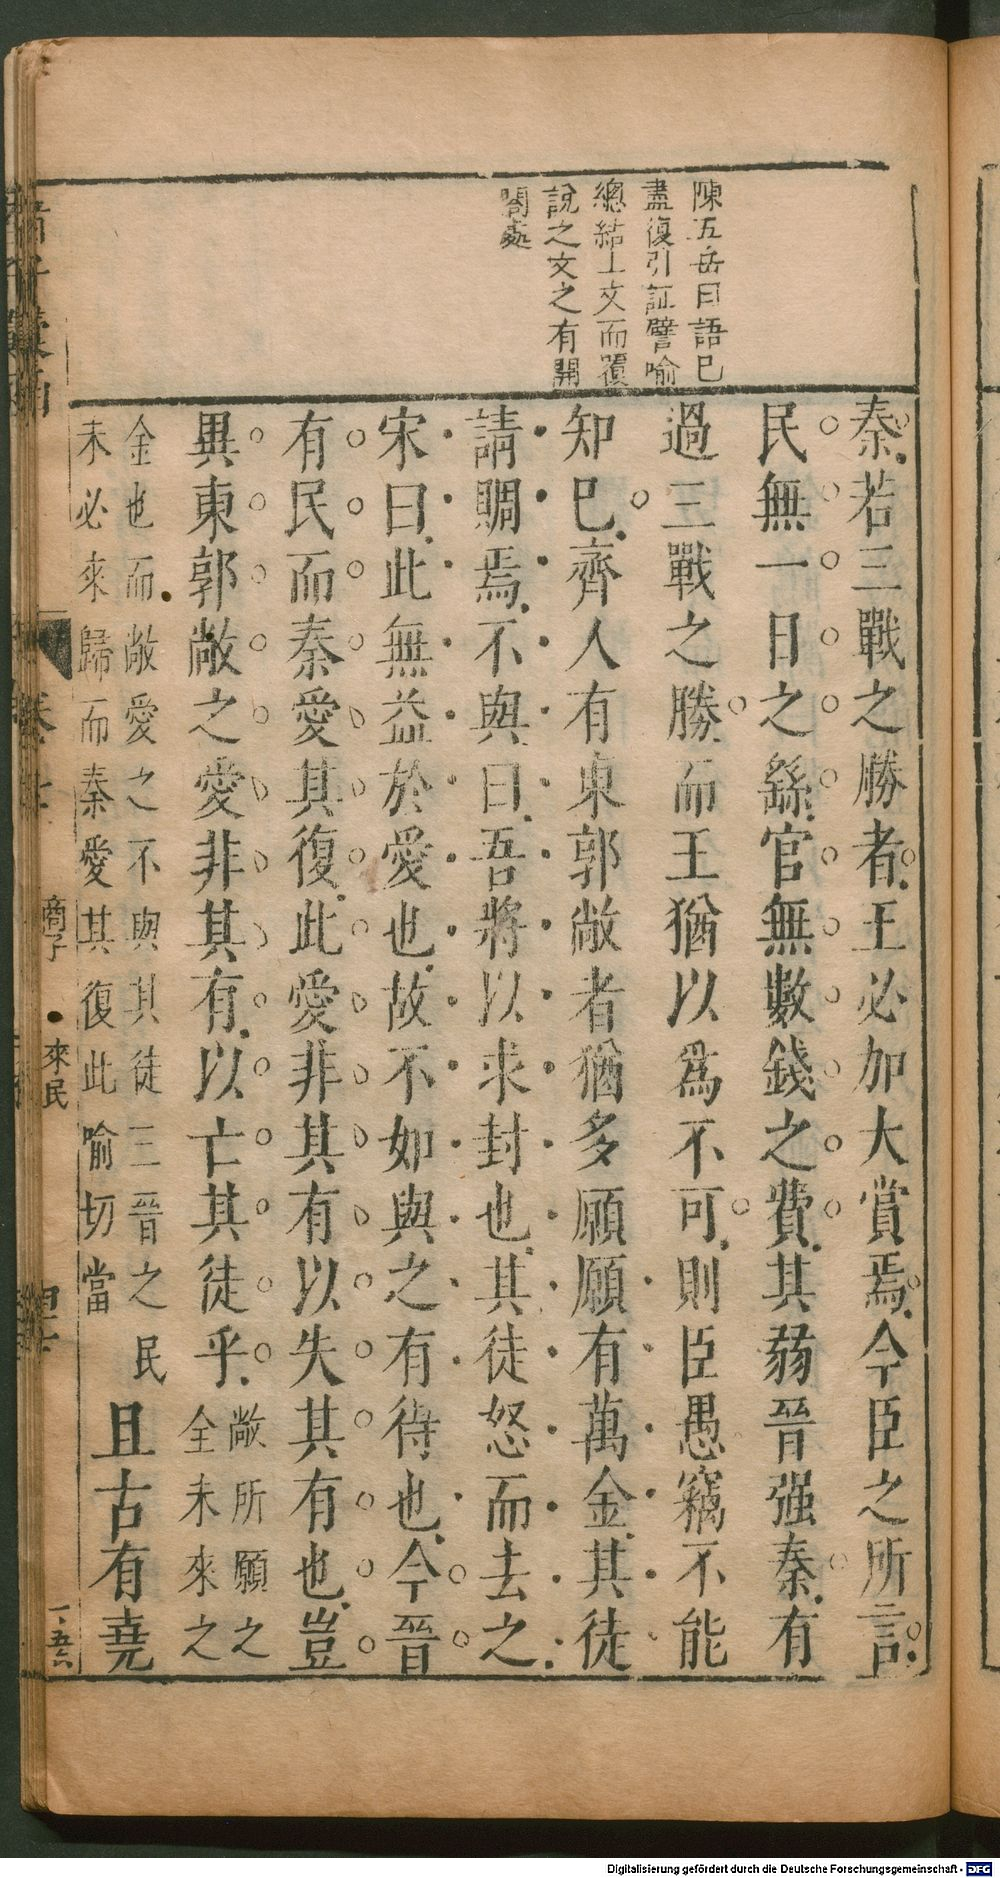 陳五岳曰語巳
盡復引証譬喻
總結上文而覆
說之文之有開
闔處
秦若三戰之勝者王必加大賞焉今臣之所言
民無一日之繇官無數錢之費其弱晉强秦有
過三戰之勝而王猶以爲不可則臣愚竊不能
知巳齊人有東郭敞者猶多願願有萬金其徒
請賙焉不與曰吾將以求封也其徒怒而去之
宋曰此無益於愛也故不如與之有待也今晉
有民而秦愛其復此愛非其有以失其有也豈
異東郭敞之愛非其有以亡其徒乎敞所願之
全未來之
金也而敞愛之不與其徒三晉之民
未必來歸而秦愛其復此喻切當
且古有堯
商子
來民
一五六
Digitalisierung gefördert durch die Deutsche Forschungsgemeinschaft - DFG